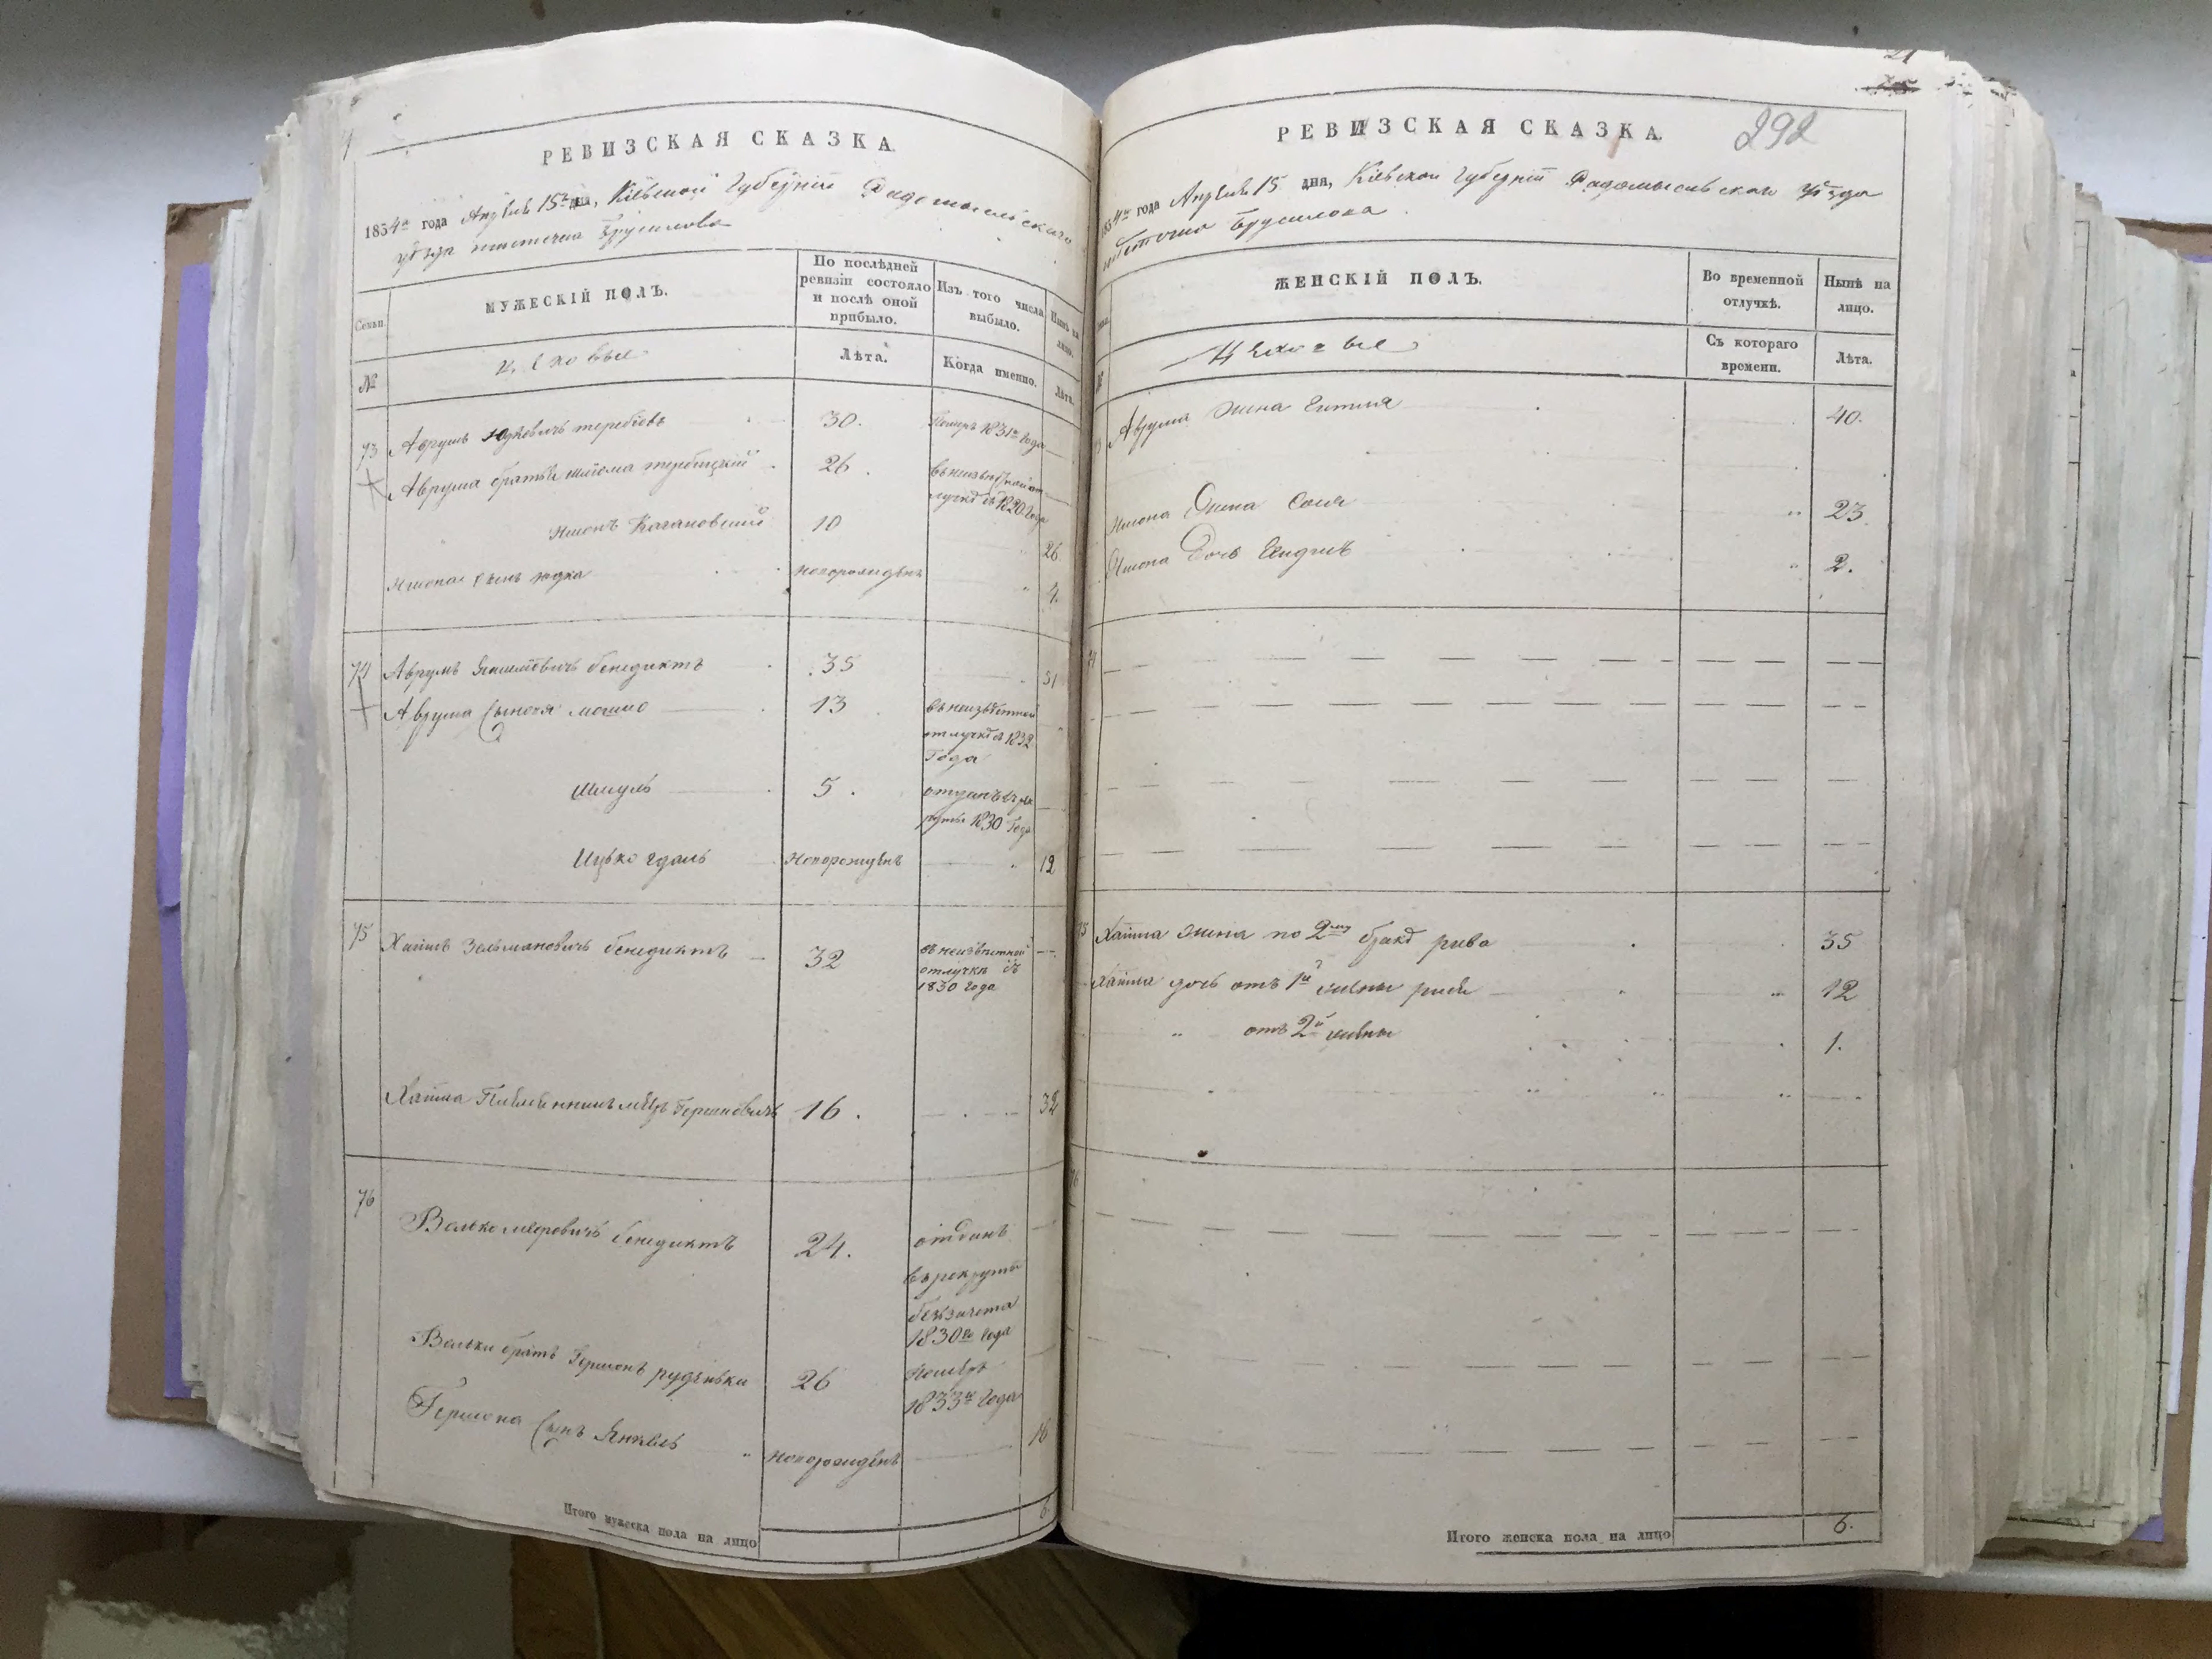 РЕВИЗСКАЯ СКАЗКА.
1834го года Апреля 15го дня, Кіевской Губерніи Радомысльскаго
уѣзда местечка Брусилова
Семьи.
МУЖЕСКІЙ ПОЛЪ.
По послѣдней
ревизіи состояло
и послѣ оной
прибыло.
Изъ того числа
выбыло.
Нынѣ на
лицо.
№
Цеховые
Лѣта.
Когда именно.
Лѣта.
73 Аврумъ Юдковичъ 30. Померъ 1831го Года
Аврума братья 26. в неизвѣстной от
лучкѣ съ 1820 Года
Кагановский 10 26
сынъ Юдка новорожденъ 4.
74 Аврумъ бенедиктъ 35 51
Аврума Сыновя мошко 13 в неизвѣстной
отлучкѣ с 1832
Года
Шмуль 5. отданъ в рек
руты 1830 Года
Ицько гдаль Новорожденъ 12
75 Хаимъ Зельмановичъ бенедиктъ 32 в неизвѣстной
отлучкѣ съ
1830 Года
Хаима Племенникъ Гершковичъ 16. 32
76
Волько меровичъ бенедиктъ 24. отданъ
в рекруты
безъ зачета
1830го года
Вольки братъ Гершонъ 26 Померъ
1833го Года
Гершона Сынъ Янкель новорожденъ 16
Итого мужеска пола на лицо 6.
21
292
РЕВИЗСКАЯ СКАЗКА.
1834го года Апреля 15 дня, Кіевской Губерніи Радомысльскаго уѣзда
местечка Брусилова.
ЖЕНСКІЙ ПОЛЪ.
Во временной
отлучкѣ.
Нынѣ на
лицо.
№
Цеховые
Съ котораго
времени.
Лѣта.
Аврума жена 40.
жена Сося 23.
дочь 2.
74
75 Хаима жена по 2му бракѣ рива 35
Хаима дочь отъ 1й жены 12
" отъ 2й жены 1.
76
Итого женска пола на лицо 6.